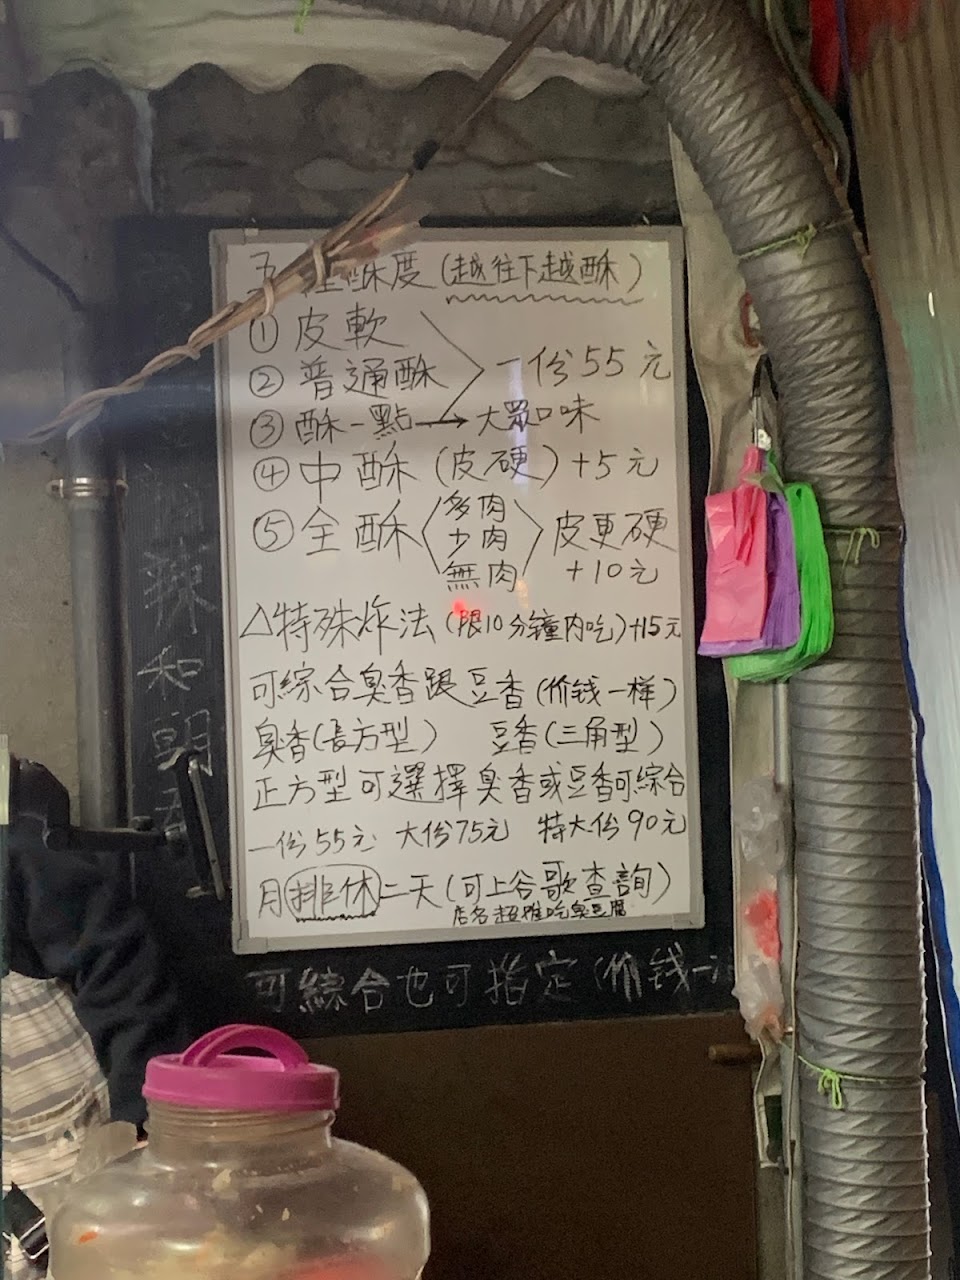 五種酥度(越往下越酥)
① 皮軟
② 普通酥 一份55元
③ 酥一點→大眾口味
④ 中酥(皮硬)+5元
⑤ 全酥 多肉 少肉 無肉 皮更硬 +10元
△特殊炸法(限10分鐘內吃)+15元
可綜合臭香跟豆香(价钱一样)
臭香(長方型) 豆香(三角型)
正方型可選擇臭香或豆香可綜合
一份55元 大份75元 特大份90元
月排休二天(可上谷歌查詢)
店名超推吃臭豆腐
可綜合也可指定(价钱一
辣和朝